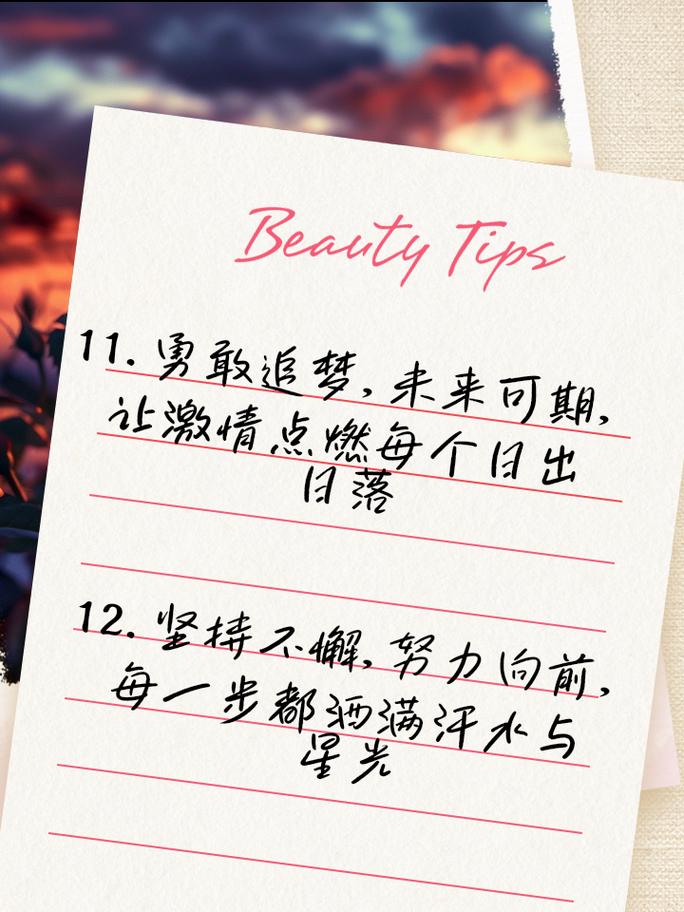 Beauty Tips
11. 勇敢追梦,未来可期,
让激情点燃每个日出
日落
12. 坚持不懈,努力向前,
每一步都洒满汗水与
星光